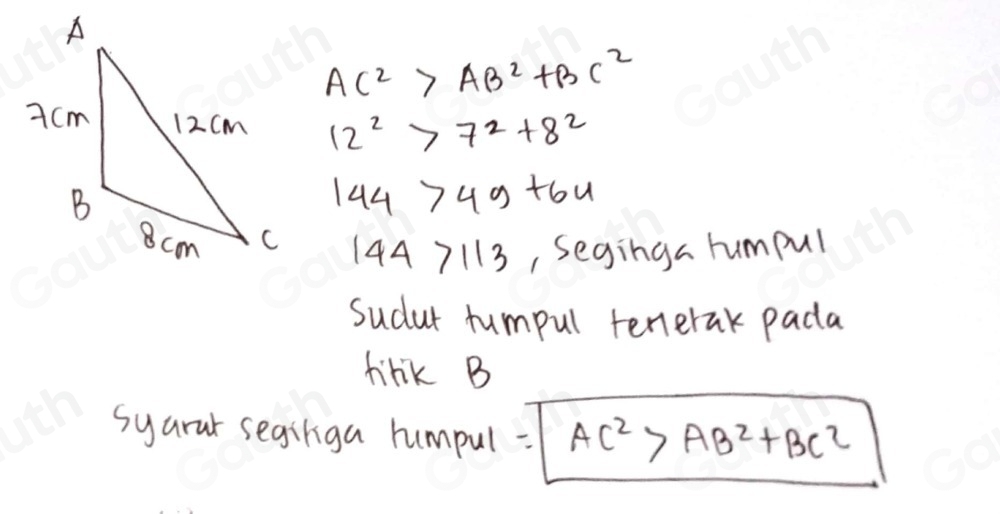 A
7cm
12cm
B
8cm
C
AC² > AB² + BC²
12² > 7² + 8²
144 > 49 + 64
144 > 113, segitiga tumpul
Sudut tumpul terletak pada
titik B
Syarat segitiga tumpul = AC² > AB² + BC²
Gauth